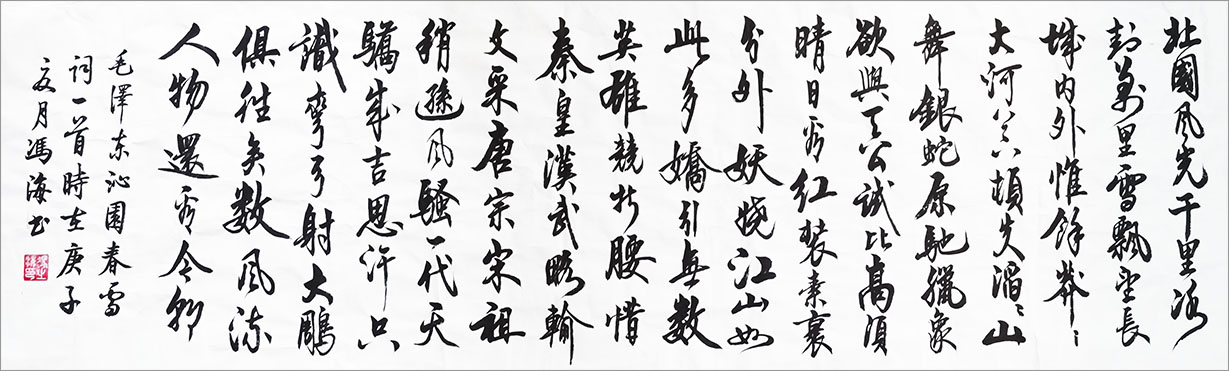 北國風光千里冰
封萬里雪飄望長
城内外惟餘莽〻
大河上下頓失滔〻山
舞銀蛇原馳臘象
欲與天公試比高須
晴日看红装素裹
分外妖娆江山如
此多嬌引無數
英雄競折腰惜
秦皇漢武略輸
文采唐宗宋祖
稍遜風騷一代天
驕成吉思汗只
識彎弓射大鵰
俱往矣數風流
人物還看今朝
毛澤东沁園春雪
词一首時在庚子
夏月馮海书